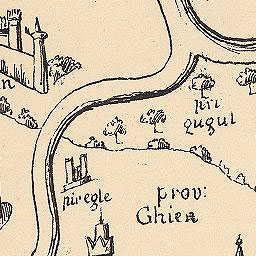 piri
gugul
piregle
prov:
Ghien